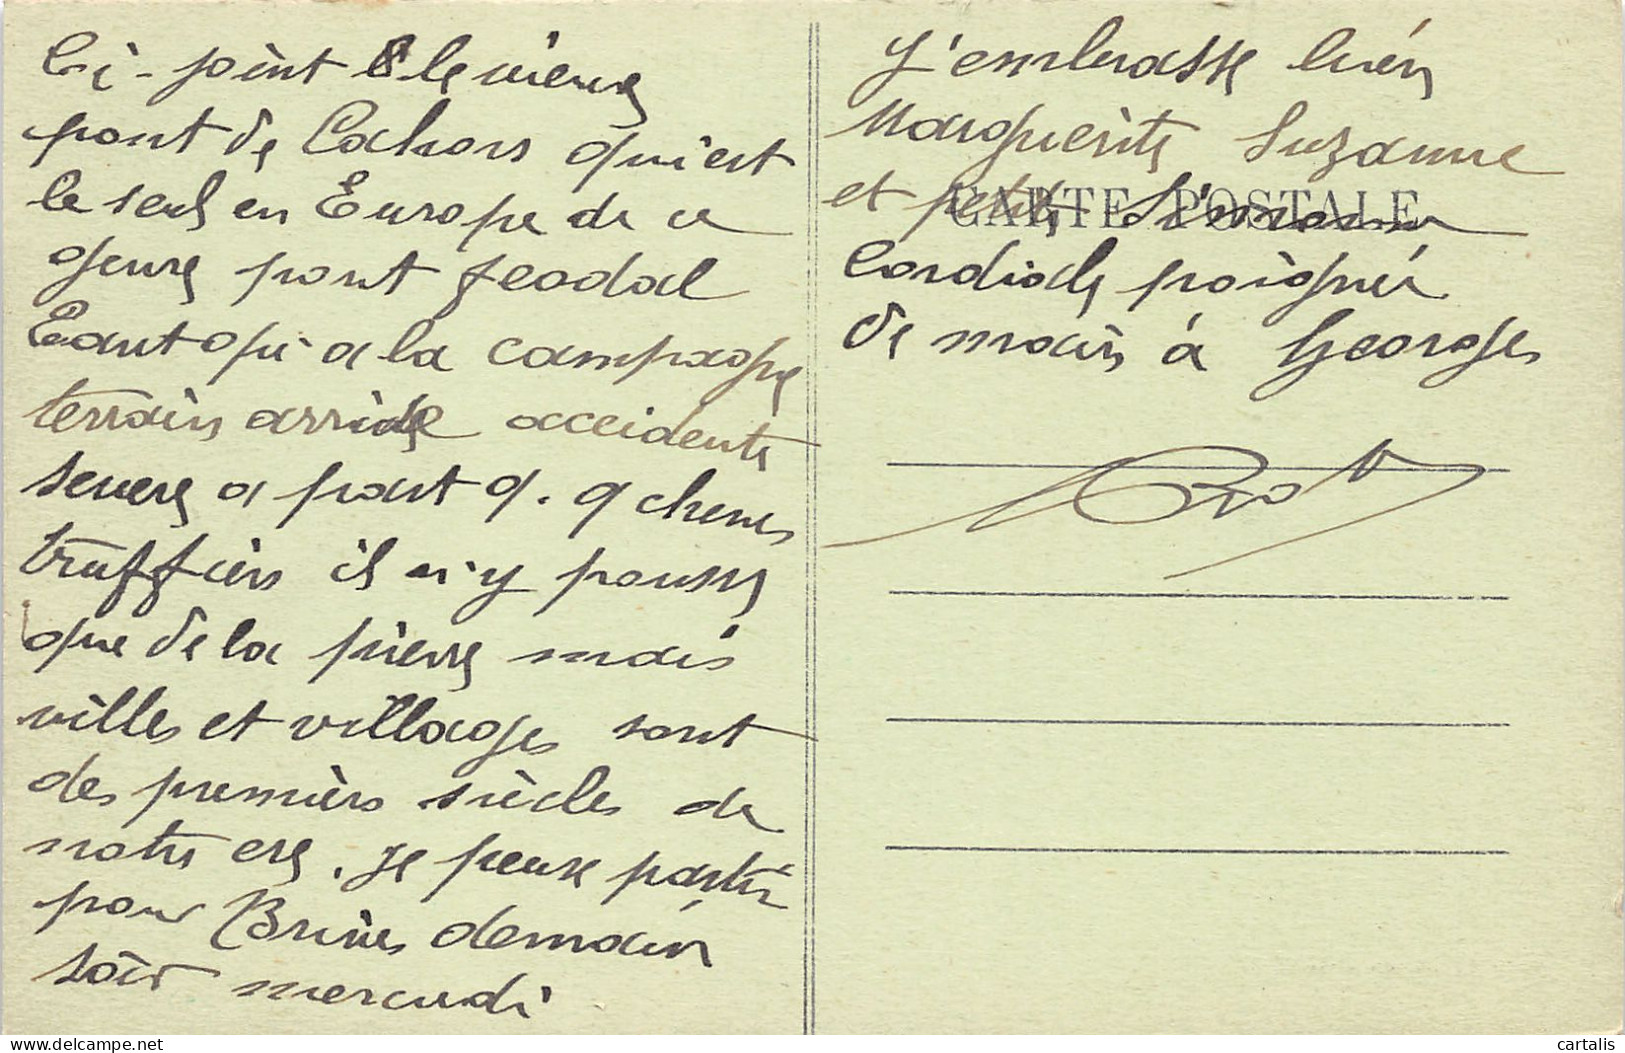 Ci-joint le vieux
pont de Cahors qui est
le seul en Europe de ce
genre pont feodal
quant à la campagne
terrain aride accidente
severe a part q. q chenes
truffiers il n'y pousse
que de la pierre mais
villes et villages sont
des premiers siècles de
notre ere. je pense partir
pour Brives demain
soir mercredi
J'embrasse bien
Marguerite Suzanne
et petite Simone
CARTE POSTALE
Cordiale poignée
de main à Georges
cartalis